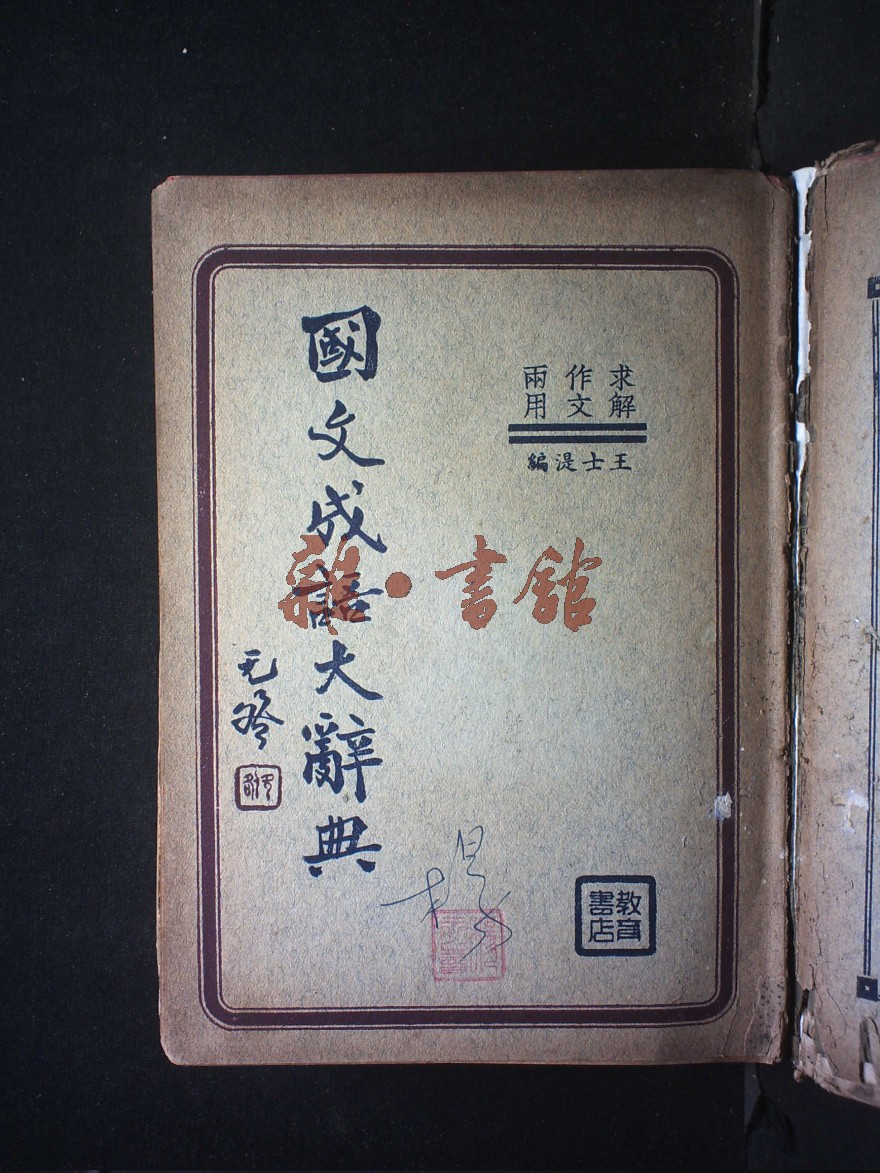 求解
作文
兩用
王士湜編
國文成語大辭典
教育書店
雜·書館
楊